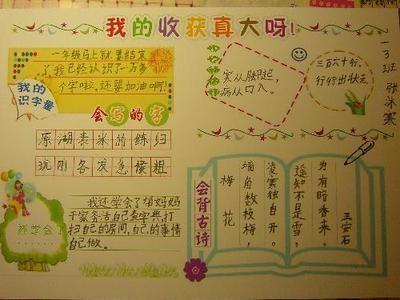 我的收获真大呀!
一年级马上就要结束
了,我已经认识了一万多
个字啦,还要加油啊!
我的
识字量
寒从脚起,
病从口入。
三百六十行,
行行出状元。
一3班
会写的字
原 湖 表 米 的 练 归
玩 刚 各 发 粗
我还学会了帮妈妈
干家务活自己查字典,打
扫自己的房间,自己的事情
自己做。
还学会了
会背古诗
梅花
墙角数枝梅,
凌寒独自开。
遥知不是雪,
为有暗香来。
王安石